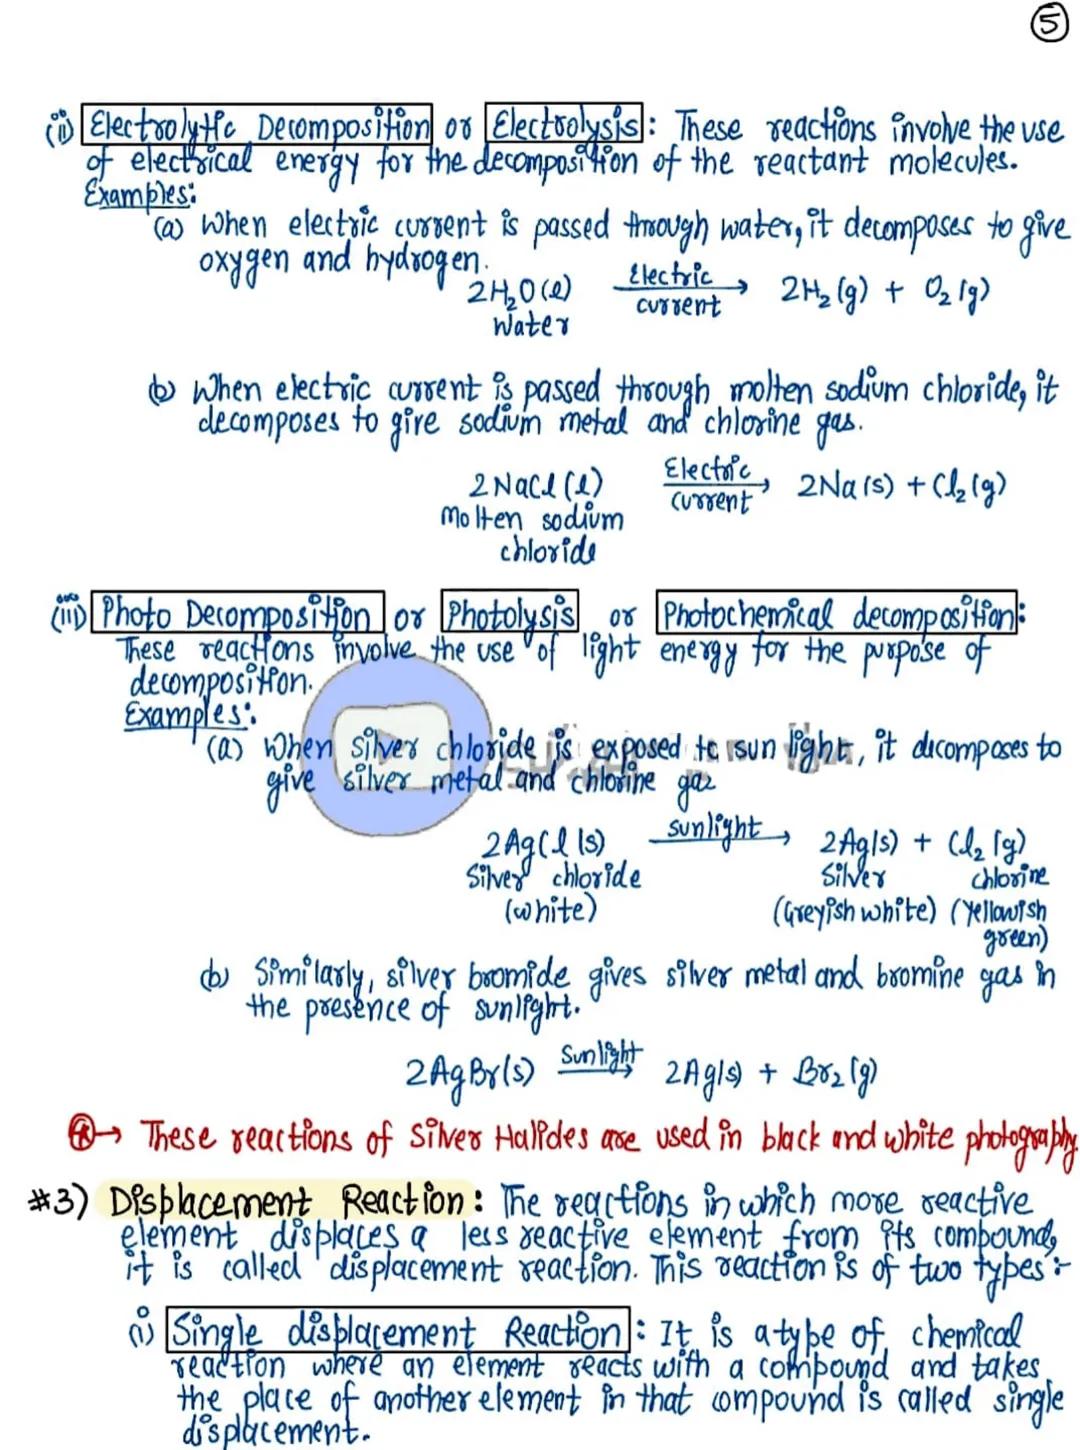 5
(ii) Electrolytic Decomposition or Electrolysis: These reactions involve the use
of electrical energy for the decomposition of the reactant molecules.
Examples:
(a) When electric current is passed through water, it decomposes to give
oxygen and hydrogen.
2H₂O(l) Electric current → 2H₂(g) + O₂(g)
Water
(b) When electric current is passed through molten sodium chloride, it
decomposes to give sodium metal and chlorine gas.
2NaCl(l) Electric current → 2Na(s) + Cl₂(g)
Molten sodium
chloride
(iii) Photo Decomposition or Photolysis or Photochemical decomposition:
These reactions involve the use of light energy for the purpose of
decomposition.
Examples:
(a) When silver chloride is exposed to sun light, it dicomposes to
give silver metal and chlorine gas
2AgCl(s) sunlight → 2Ag(s) + Cl₂(g)
Silver chloride Silver chlorine
(white) (Greyish white) (Yellowish
green)
(b) Similarly, silver bromide gives silver metal and bromine gas in
the presence of sunlight.
2AgBr(s) Sunlight → 2Ag(s) + Br₂(g)
→ These reactions of Silver Halides are used in black and white photography.
#3) Displacement Reaction: The reactions in which more reactive
element displaces a less reactive element from its compound,
it is called displacement reaction. This reaction is of two types:-
(i) Single displacement Reaction: It is a type of chemical
reaction where an element reacts with a compound and takes
the place of another element in that compound is called single
displacement.